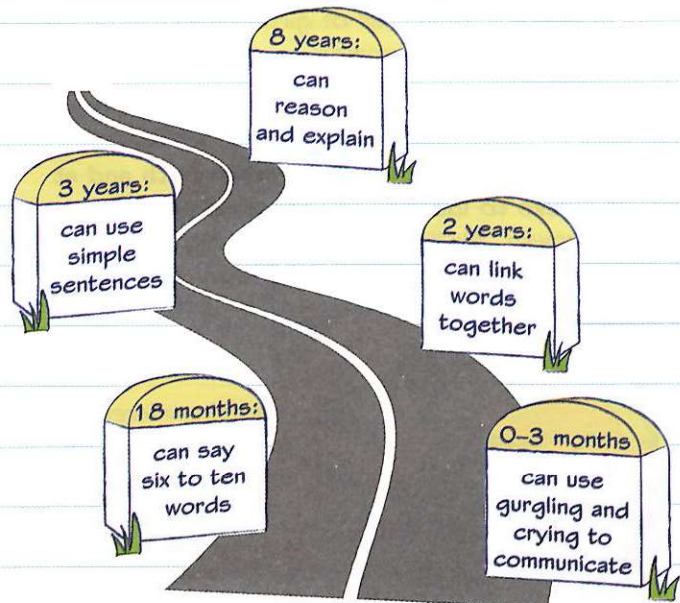 8 years:
can
reason
and explain
3 years:
can use
simple
sentences
2 years:
can link
words
together
18 months:
can say
six to ten
words
0–3 months
can use
gurgling and
crying to
communicate